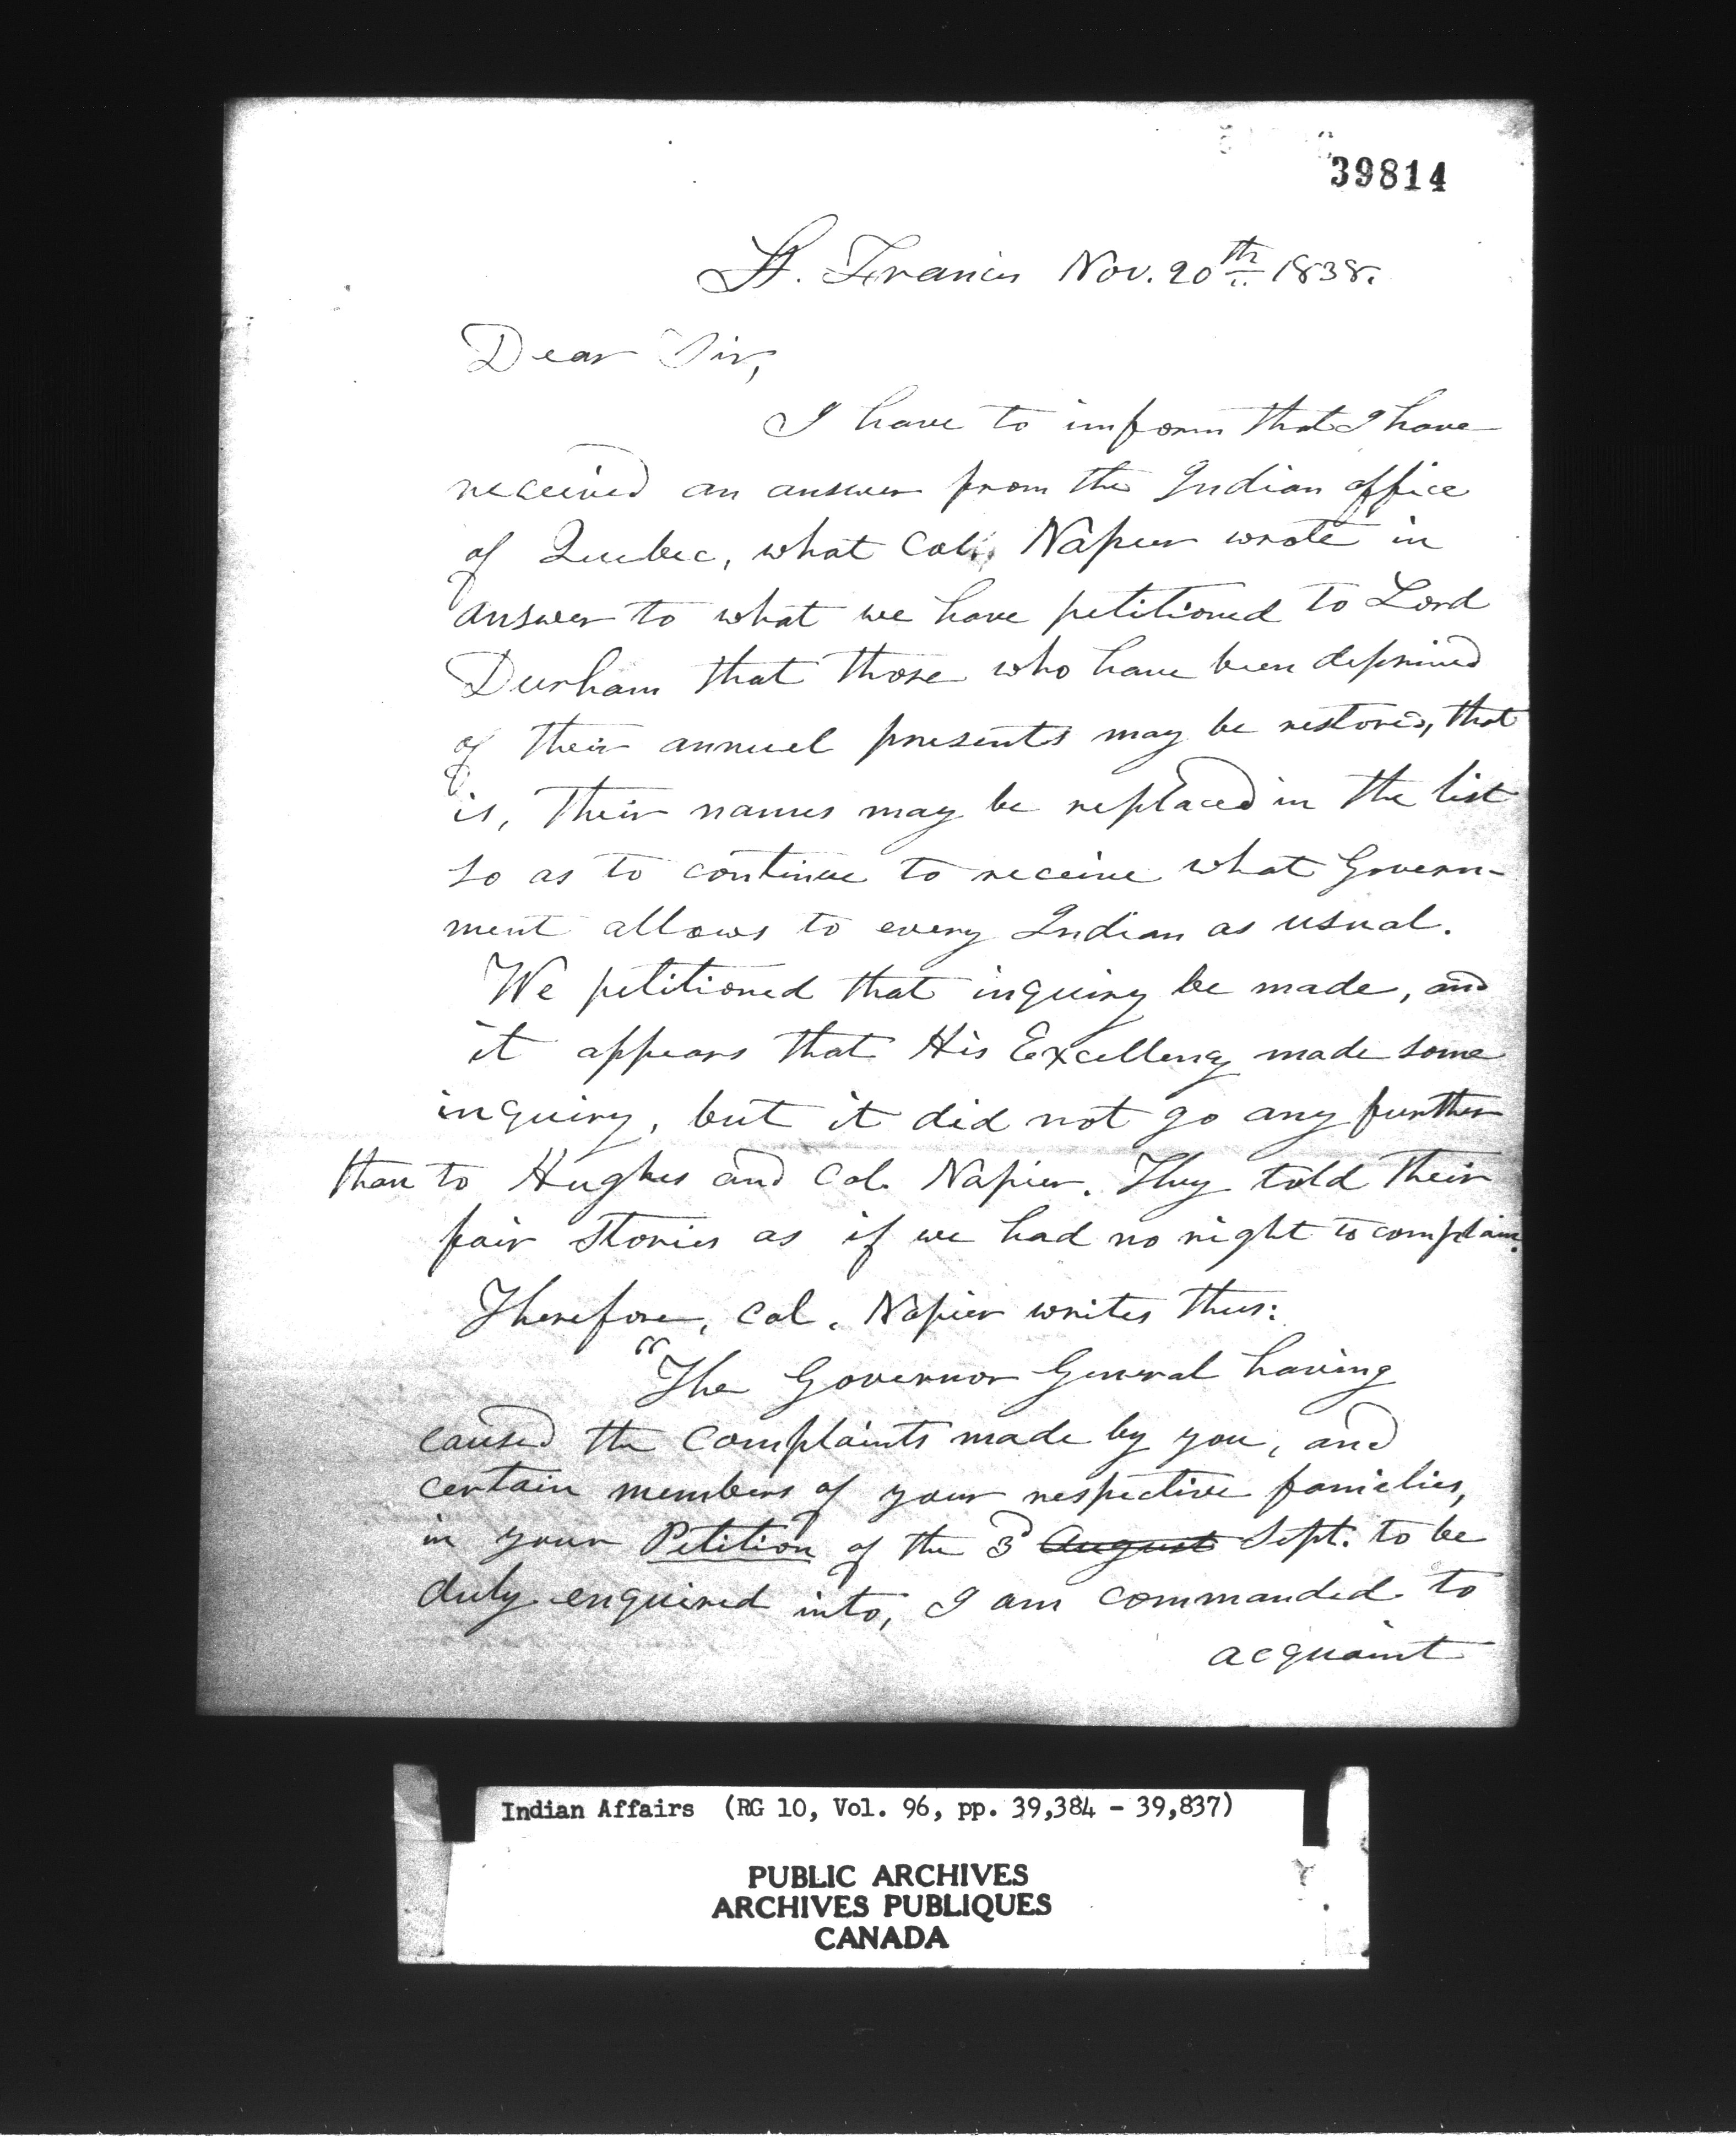 39814
St. Francis Nov. 20th 1838.
Dear Sir,
I have to imform that I have
received an answer from the Indian office
of Quebec, what Col. Napier wrote in
answer to what we have petitioned to Lord
Durham that those who have been deprived
of their annuel presents may be restored, that
is, their names may be replaced in the list
so as to continue to receive what Govern-
ment allows to every Indian as usual.
We petitioned that inquiry be made, and
it appears that His Excellency made some
inquiry, but it did not go any further
than to Hughes and Col. Napier. They told their
fair stories as if we had no right to complain.
Therefore, Col. Napier writes thus:
"The Governor General having
caused the complaints made by you, and
certain members of your respective families,
in your Petition of the 3d August Sept. to be
duly enquired into, I am commanded to
acquaint
Indian Affairs (RG 10, Vol. 96, pp. 39,384 - 39,837)
PUBLIC ARCHIVES
ARCHIVES PUBLIQUES
CANADA